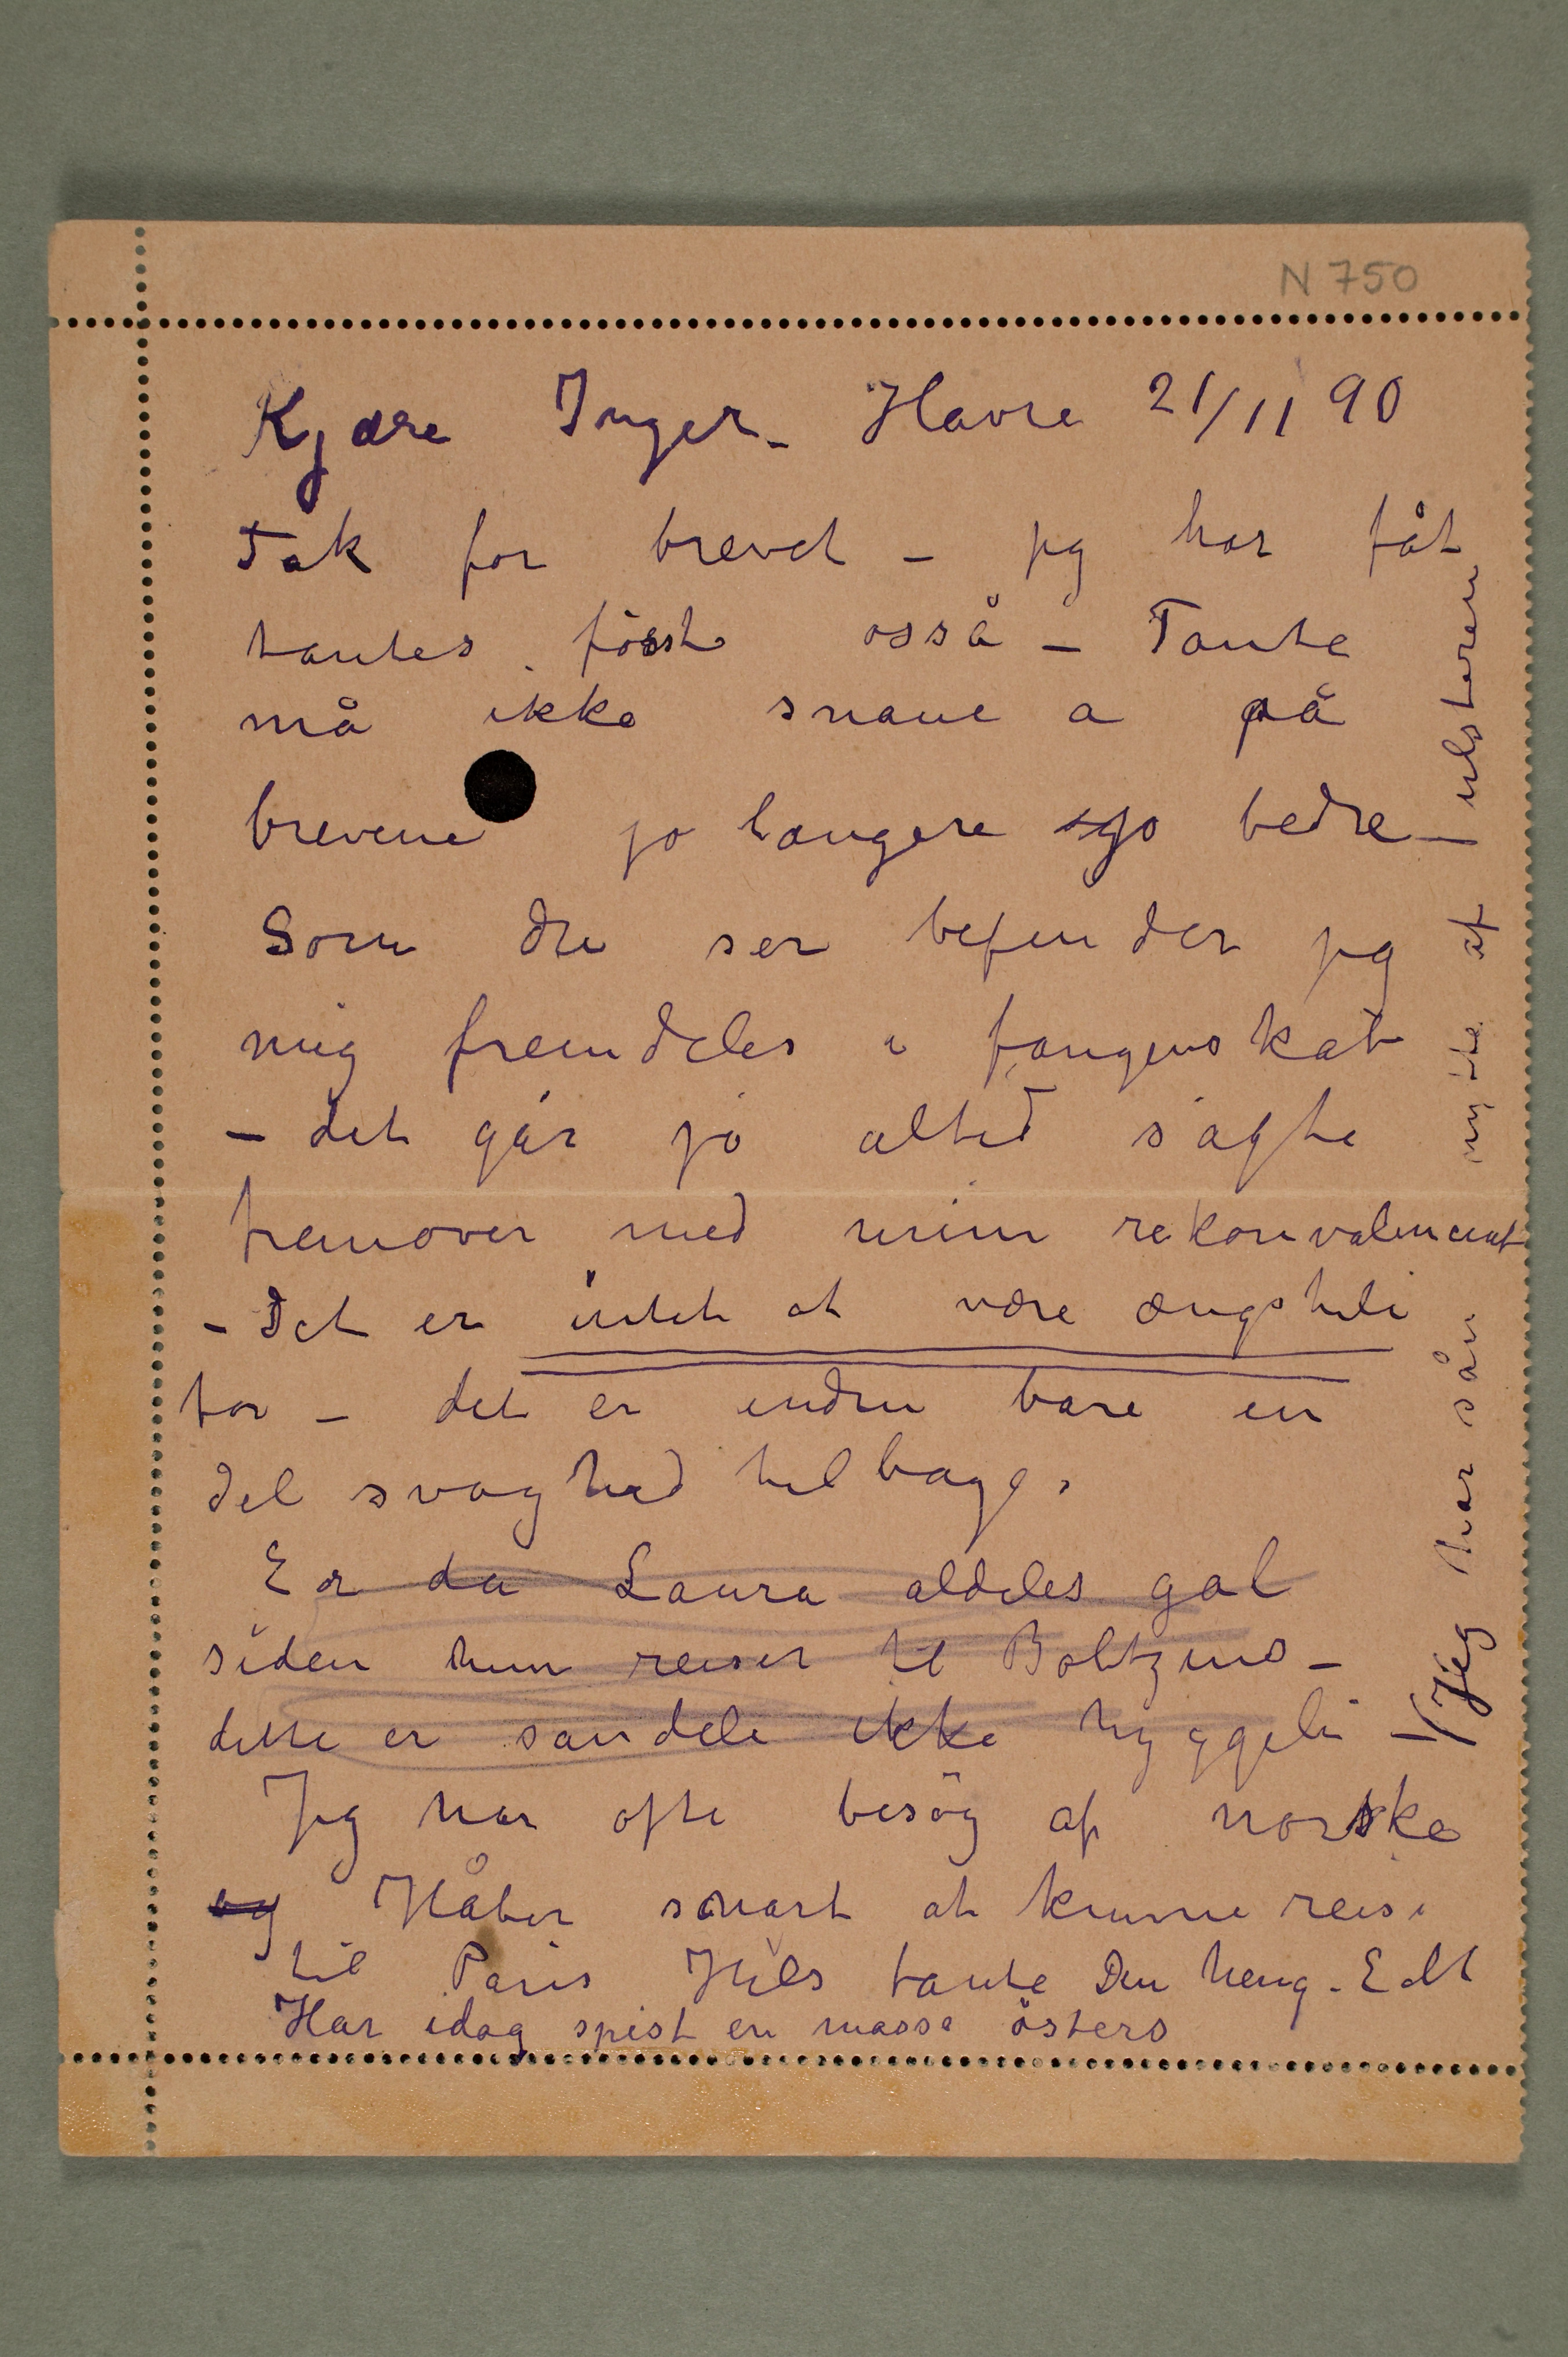 N 750
Kjære Inger. Havre 21/11 90
Tak for brevet – jeg har fåt
tantes först osså – Tante
må ikke snaue a på
brevene jo længere jo bedre –
Som du ser befinder jeg
mig fremdeles i fangenskab
– det går jo altid sagte
fremover med min rekonvalencent
– Det er intet at være ængsteli
for – det er endnu bare en
del svaghed tilbage.
Er da Laura aldeles gal
siden hun reiser til Boltzens –
dette er sandeli ikke hyggeli –
Jeg har ofte besög af norske
og Håber snart at kunne reise
til Paris Hils tante Din heng. E M
Har idag spist en masse östers
Jeg har sån nytte af ulsteren